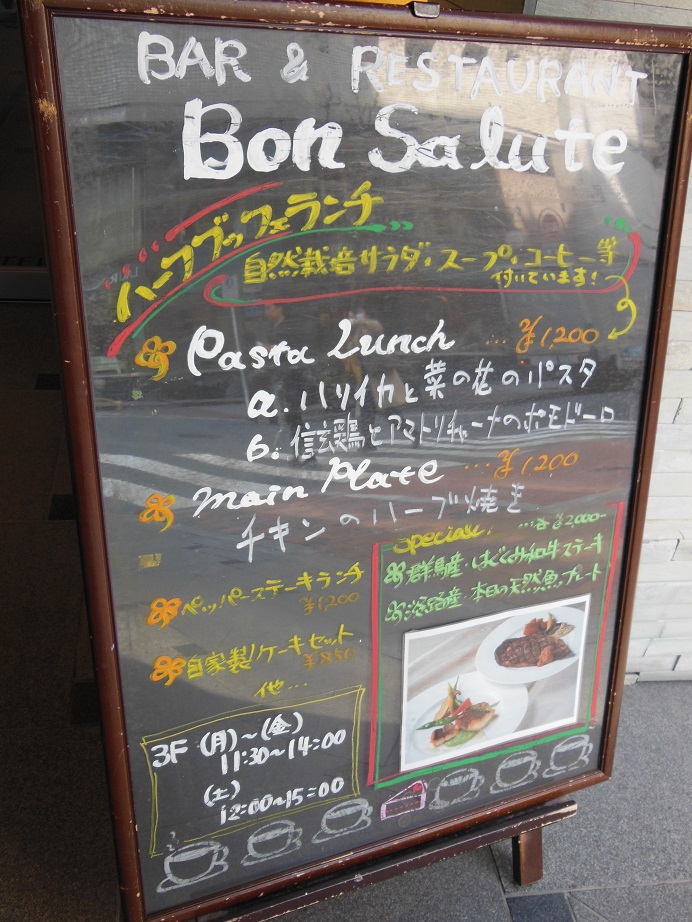 BAR & RESTAURANT
Bon Salute
ハーフブッフェランチ
自然栽培サラダ、スープ、コーヒー等
付いています!
Pasta Lunch …¥1,200
a. ハリイカと菜の花のパスタ
b. 信玄鶏とアマトリチャーナのポモドーロ
Main Plate …¥1200
チキンのハーブ焼き
Special …各¥2000-
群馬産・はぐくみ和牛ステーキ
淡路産・本日の天然魚プレート
ペッパーステーキランチ
¥1200
自家製ケーキセット
¥850
他…
3F (月)~(金)
11:30~14:00
(土)
12:00~15:00